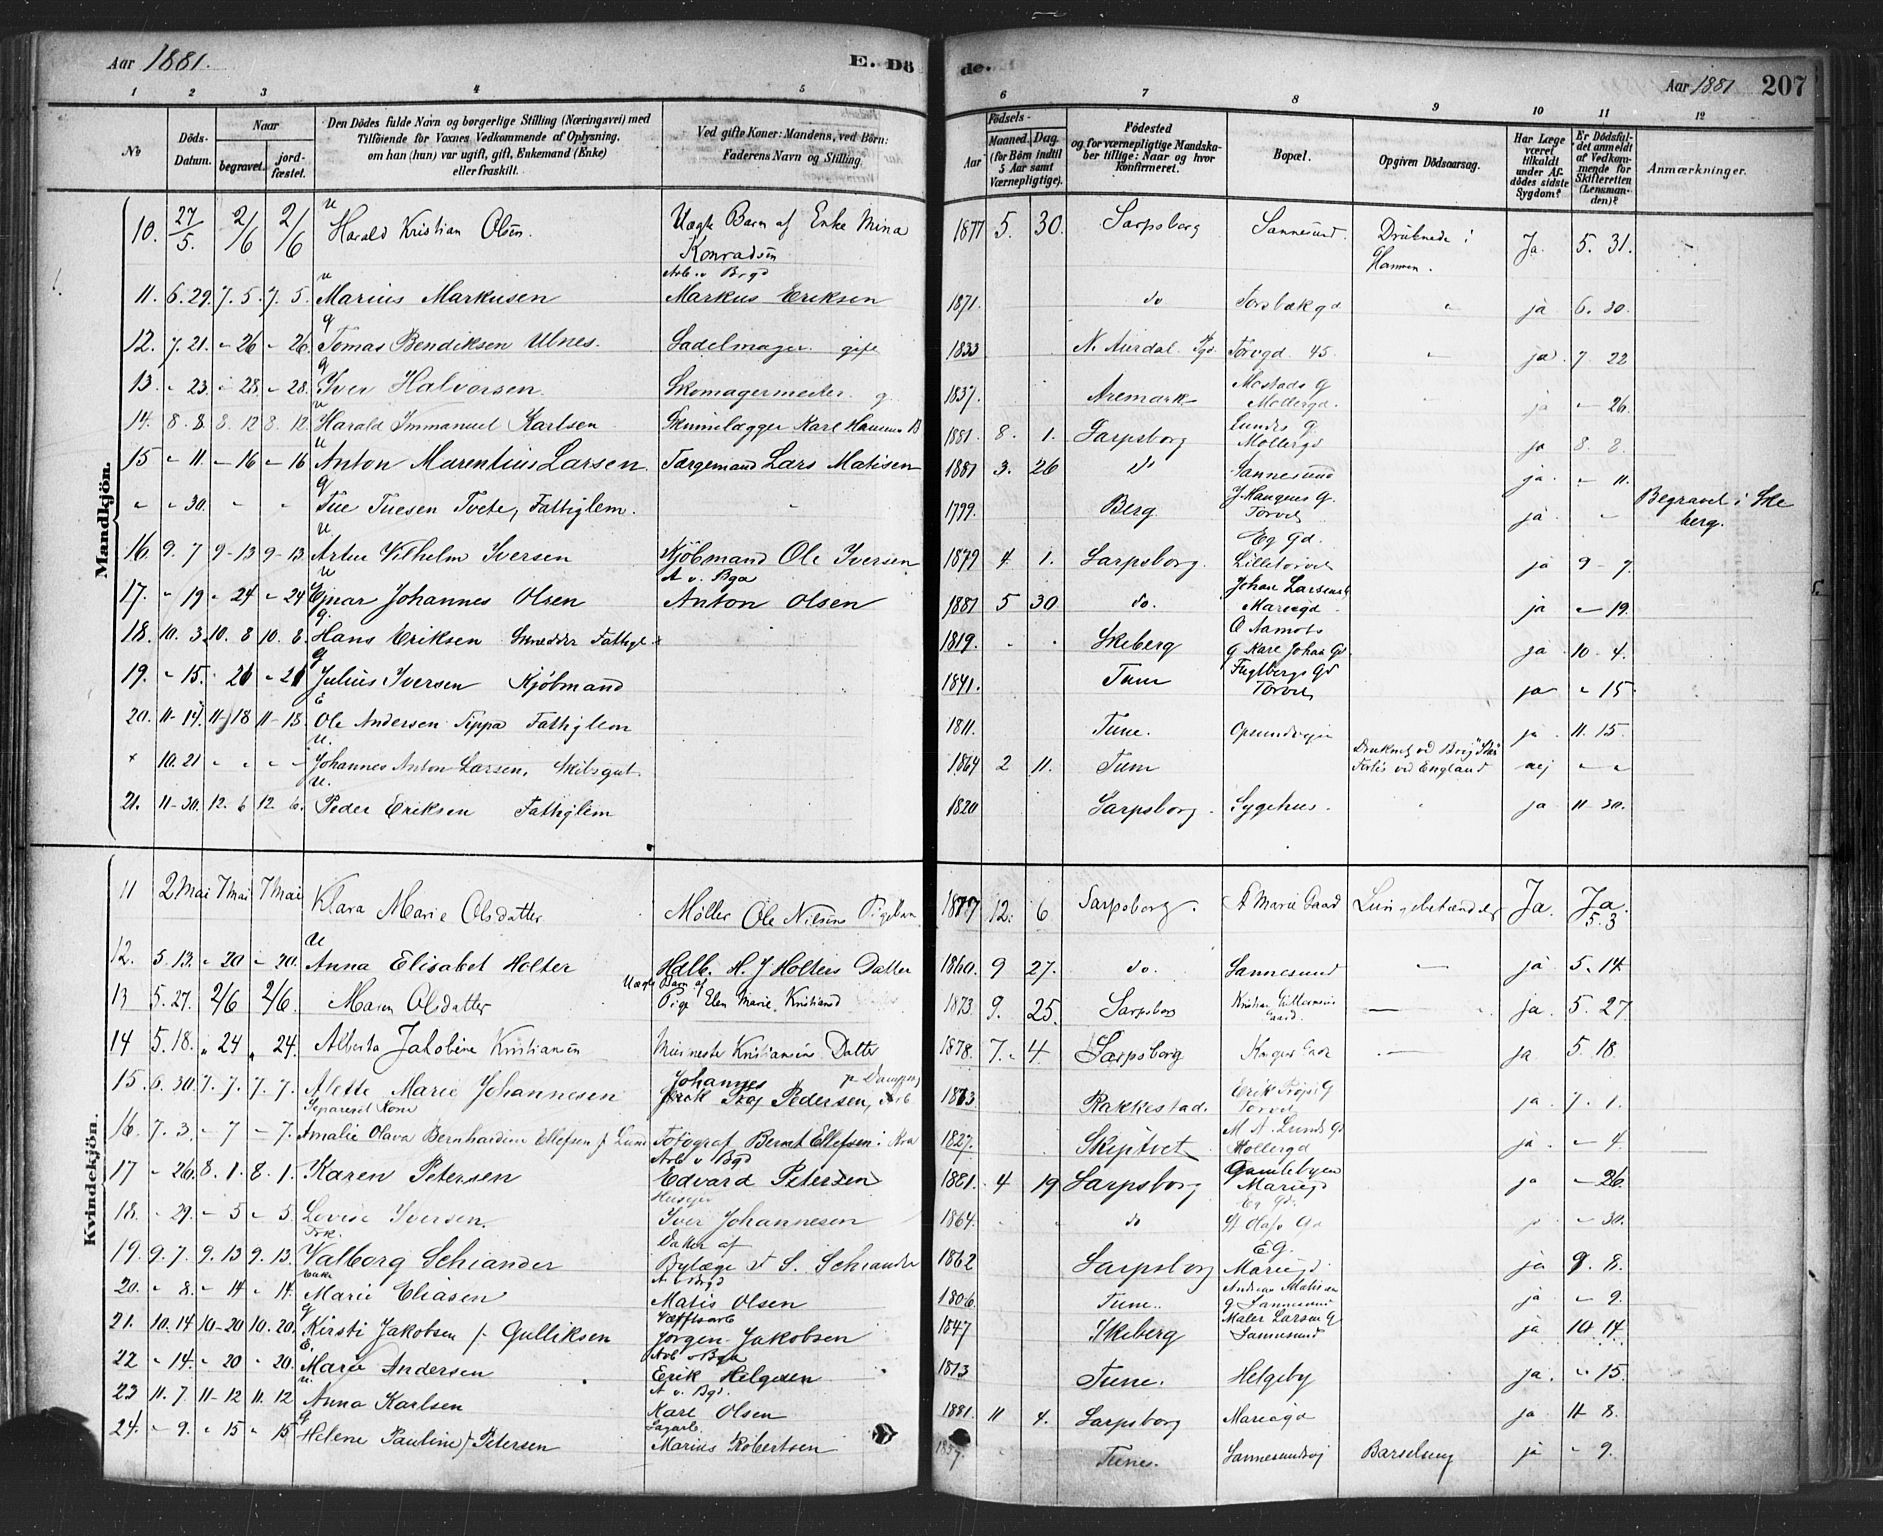 Aar 1881. E. Dö de. Aar 1881 207
1 2 3 4 5 6 7 8 9 10 11 12
№ Döds-Datum. Naar begravet. jordfæstet. Den Dödes fulde Navn og borgerlige Stilling (Næringsvei) med Tilföiende for Voxnes Vedkommende af Oplysning, om han (hun) var ugift, gift, Enkemand (Enke) eller fraskilt. Ved gifte Koner: Mandens, ved Börn: Faderens Navn og Stilling. Födsels- Aar Maaned. Dag. (for Börn indtil 5 Aar samt Værnepligtige). Födested og for værnepligtige Mandskaber tillige: Naar og hvor konfirmeret. Bopæl. Opgiven Dödsaarsag. Har Læge været tilkaldt under Afdödes sidste Sygdom? Er Dödsfaldet anmeldt af Vedkommende for Skifteretten (Lensmanden)? Anmærkninger.
Mandkjön.
10. 27/5. 2/6 2/6 u Harald Kristian Olsen. Uægte Barn af Enke Mina Konradsen 1877 5. 30. Sarpsborg Sannesund. Druknede i Ja 5. 31.
11. 6. 29. 7. 5. 7. 5. u Marius Markusen Arb. v Brgd Markus Eriksen 1871. do Torsbækgd ja 6. 30.
12. 7. 21. - 26 - 26. g Tomas Bendiksen Ulnes. Sadelmager gift 1833 N. Aurdal Pgd. Torvgd. 45. ja 7 22
13. - 23. - 28 - 28. g Iver Halvorsen. Skomagermester g 1837. Aremark Mostads G Möllergd. ja - 26.
14. 8. 8. 8. 12 8. 12 u Harald Immanuel Karlsen Karl Hansens B 1881. 8. 1. Sarpsborg Lunds G. Möllergd ja 8. 8.
15 - 11. - 16 - 16 u Anton Marentius Larsen. Færgemand Lars Matisen 1881 3. 26 do Sannesund ja - 11.
- - 30. - - g Tue Tuesen Tvete, Fattiglem. 1799. Berg. J Haugens G. Torvet ja - Begravet i Skeberg.
16. 9. 7 9 - 13 9 - 13 u Artur Vilhelm Iversen Kjöbmand Ole Iversen 1879 4. 1. Sarpsborg. Eg Gd. Lilletorvet ja 9 - 7.
17. - 19 - 24 - 24 u Ejnar Johannes Olsen A v. Bga Anton Olsen 1881 5 30 do. Johan Larsens G Mariegd. ja - 19.
18. 10. 3. 10. 8 10. 8. g. Hans Eriksen Skrædder Fattigl 1819. Skeberg O Aamots G Karl Johan Gd ja 10. 4.
19. - 15. - 21 - 21 g Julius Iversen Kjöbmand 1841. Tune Fuglbergs Gd Torvet ja - 15
20. 11 - 14 11 - 18 11 - 18. E Ole Andersen Tippa Fattiglem 1811. Tune. ja 11. 15.
x 10. 21 - - - u. Johannes Anton Larsen. Skibsgut. 1864 2 11. Tune Druknet ved Brig Forlis ved England nej - -
21. 11 - 30. 12. 6 12 6. u. Peder Eriksen Fattiglem 1820 Sarpsborg. Sygehus. ja 11 - 30.
Kvindekjön.
11 2 Mai 7 Mai 7 Mai Klara Marie Olsdatter Møller Ole Nielsens Pigebarn 1877 12. 6 Sarpsborg. A Marie Gaard Lungebetændelse Ja. Ja. 5. 3
12. 5. 13. - 20 - 20. u Anna Elisabet Holter Hdlb. H. J Holters Datter 1860. 9 27. do. Sannesund ja 5. 14.
13 5. 27. 2/6 2/6. Maren Olsdatter Uægte Barn af Pige Elen Marie Kristians 1873. 9. 25. Sarpsborg Kristian Guttormsens Gaard. ja. 5. 27.
14 5. 18. " 24 " 24. Alberta Jakobine Kristiansen Murmester Kristiansens Datter 1878. 7. 4. Sarpsborg ja 5. 18.
15. 6. 30. 7. 7. 7. 7. Alette Marie Johannesen Separeret Kone Johannes Pedersen, Arb 1813 Rakkestad. Erik G Torvet ja. 7. 1.
16. 7. 3. - 7 - 7. Amalie Olava Bernhardine Ellefsen f Lund Fotograf Bernt Ellefsen 1827. Skiptvet M A Lunds Gd Möllergd ja - 4
17 - 26. 8. 1. 8. 1. Karen Petersen Arb v Bgd Edvard Petersen 1881. 4 19 Sarpsborg Gamlebyen Mariegd ja - 26
18. - 29. - 5 - 5. Lovise Iversen. Huseyer Iver Johannesen 1864. do Eg Gd. St Olafs Gd - 30.
19. 9. 7. 9. 13 9. 13. Frk. Valborg Schiander Datter af Bylæge S. Schiander 1862 Sarpsborg E G. Mariegd ja 9. 8.
20. - 8. - 14 - 14. Enke Marie Eliasen A v Bgd Matis Olsen 1806. Tune.. Andreas Matisen G Sannesund ja - 9.
21. 10. 14 10 - 20 10. 20. g Kirsti Jakobsen f. Gulliksen Jørgen Jakobsen 1847 Skeberg Maler Larsen G Sannesund ja 10. 14.
22 - 14. - 20 - 20. E. Marie Andersen Arb v Bga Erik Helgesen 1813 Tune. Helgeby ja. - 15.
23 11. 7. 11 - 12 11. 12 u. Anna Karlsen A v. Bgd. Karl Olsen 1881. 11 4. Sarpsborg Mariegd ja 11. 8.
24. - 9. - 15 - 15 g Helene Pauline f Petersen Sagarb. Marius Robertsen 1857. Tune. Sannesundvej Barselseng ja - 9.